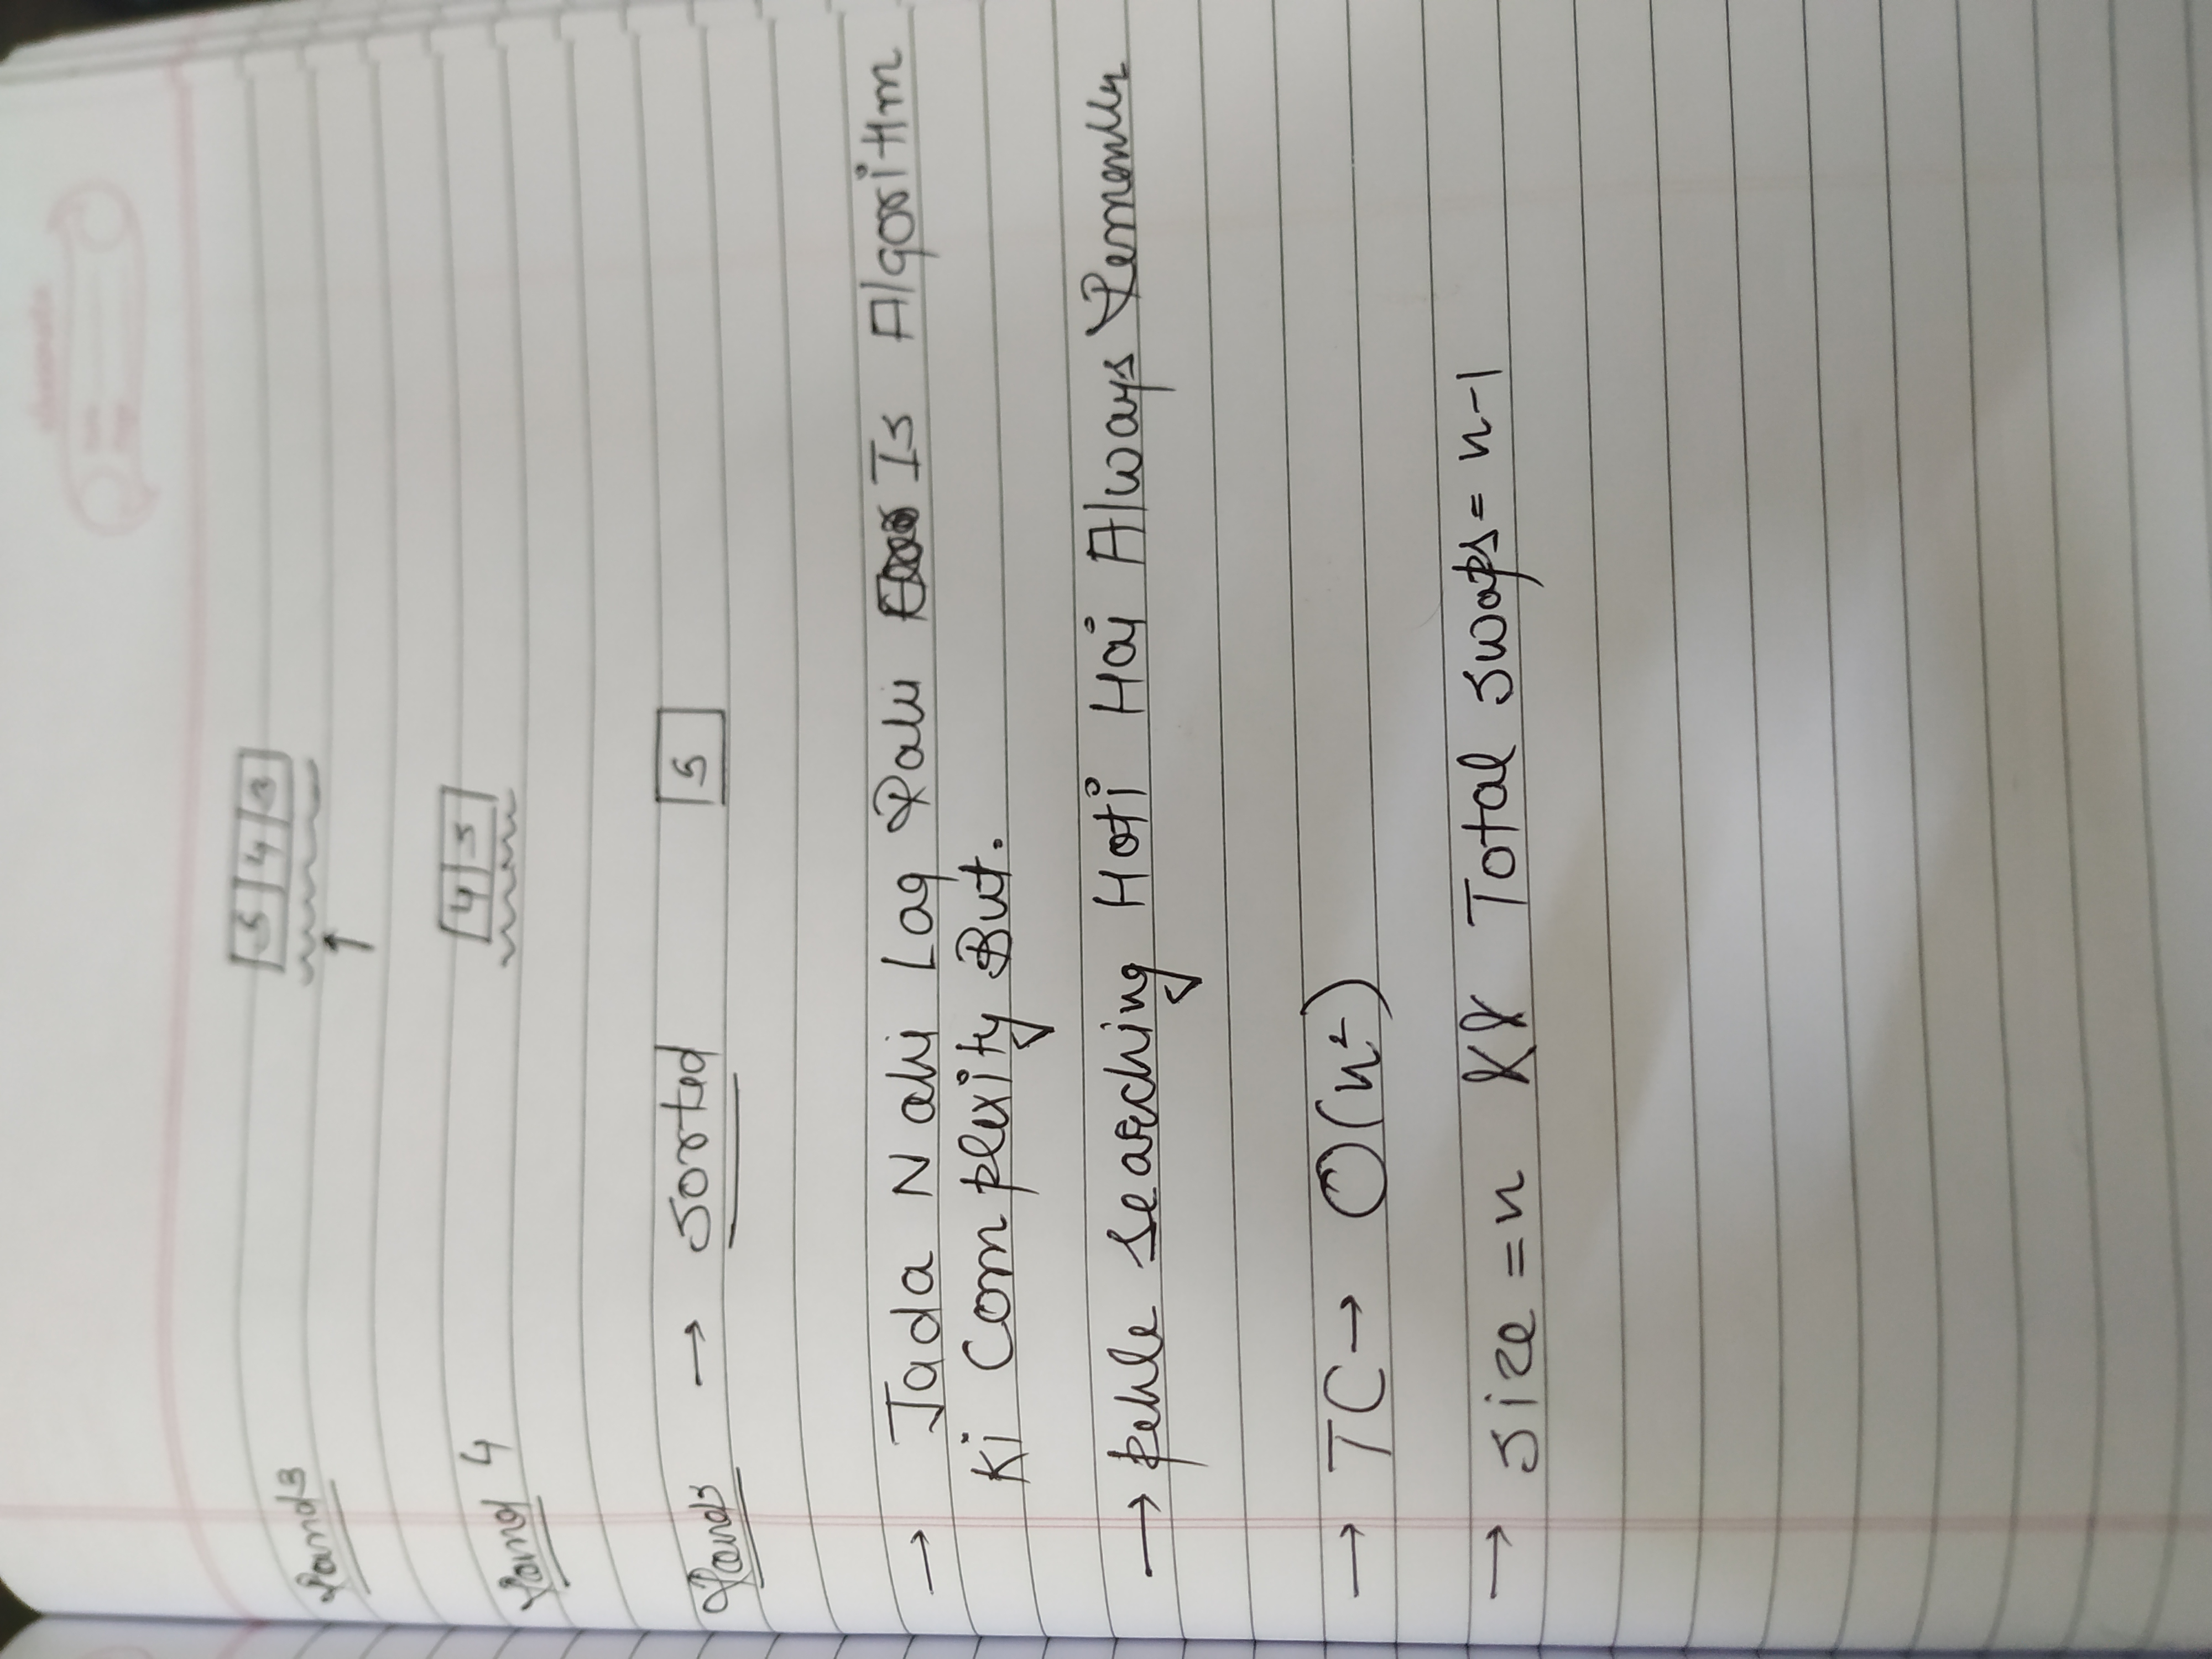 Round 3
5 4 3
Round 4
4 5
Round 5 → Sorted 5
→ Jada Nahi Lag Rahi Is Algorithm
Ki Complexity But.
→ Pehle Searching Hoti Hai Always Remember
→ TC → O(n²)
→ Size = n && Total Swaps = n-1